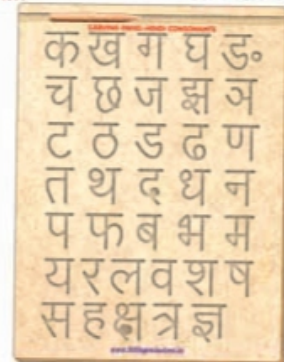 CARVING PANEL-HINDI CONSONANTS
क ख ग घ ङ
च छ ज झ ञ
ट ठ ड ढ ण
त थ द ध न
प फ ब भ म
य र ल व श ष
स ह क्ष त्र ज्ञ